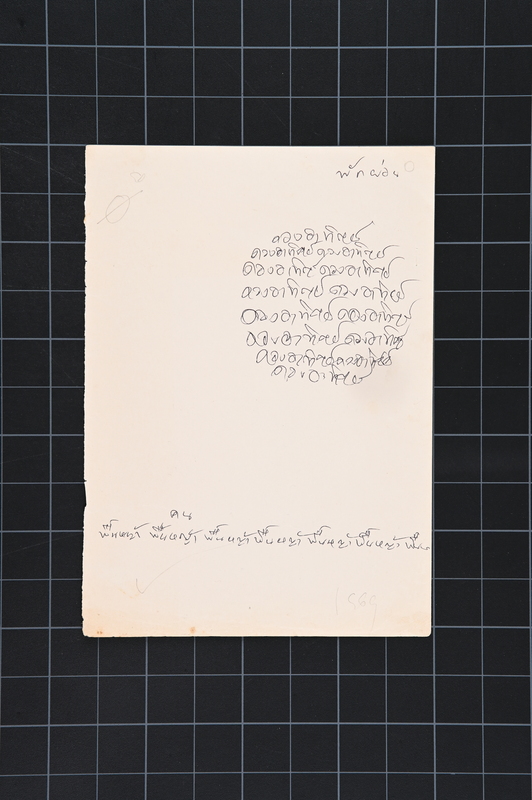 พักผ่อน
ดวงอาทิตย์
ดวงอาทิตย์ ดวงอาทิตย์
ดวงอาทิตย์ ดวงอาทิตย์
ดวงอาทิตย์ ดวงอาทิตย์
ดวงอาทิตย์ ดวงอาทิตย์
ดวงอาทิตย์ ดวงอาทิตย์
ดวงอาทิตย์ ดวงอาทิตย์
ดวงอาทิตย์
คน
พื้นหญ้า พื้นหญ้า พื้นหญ้า พื้นหญ้า พื้นหญ้า พื้นหญ้า พื้น
1969